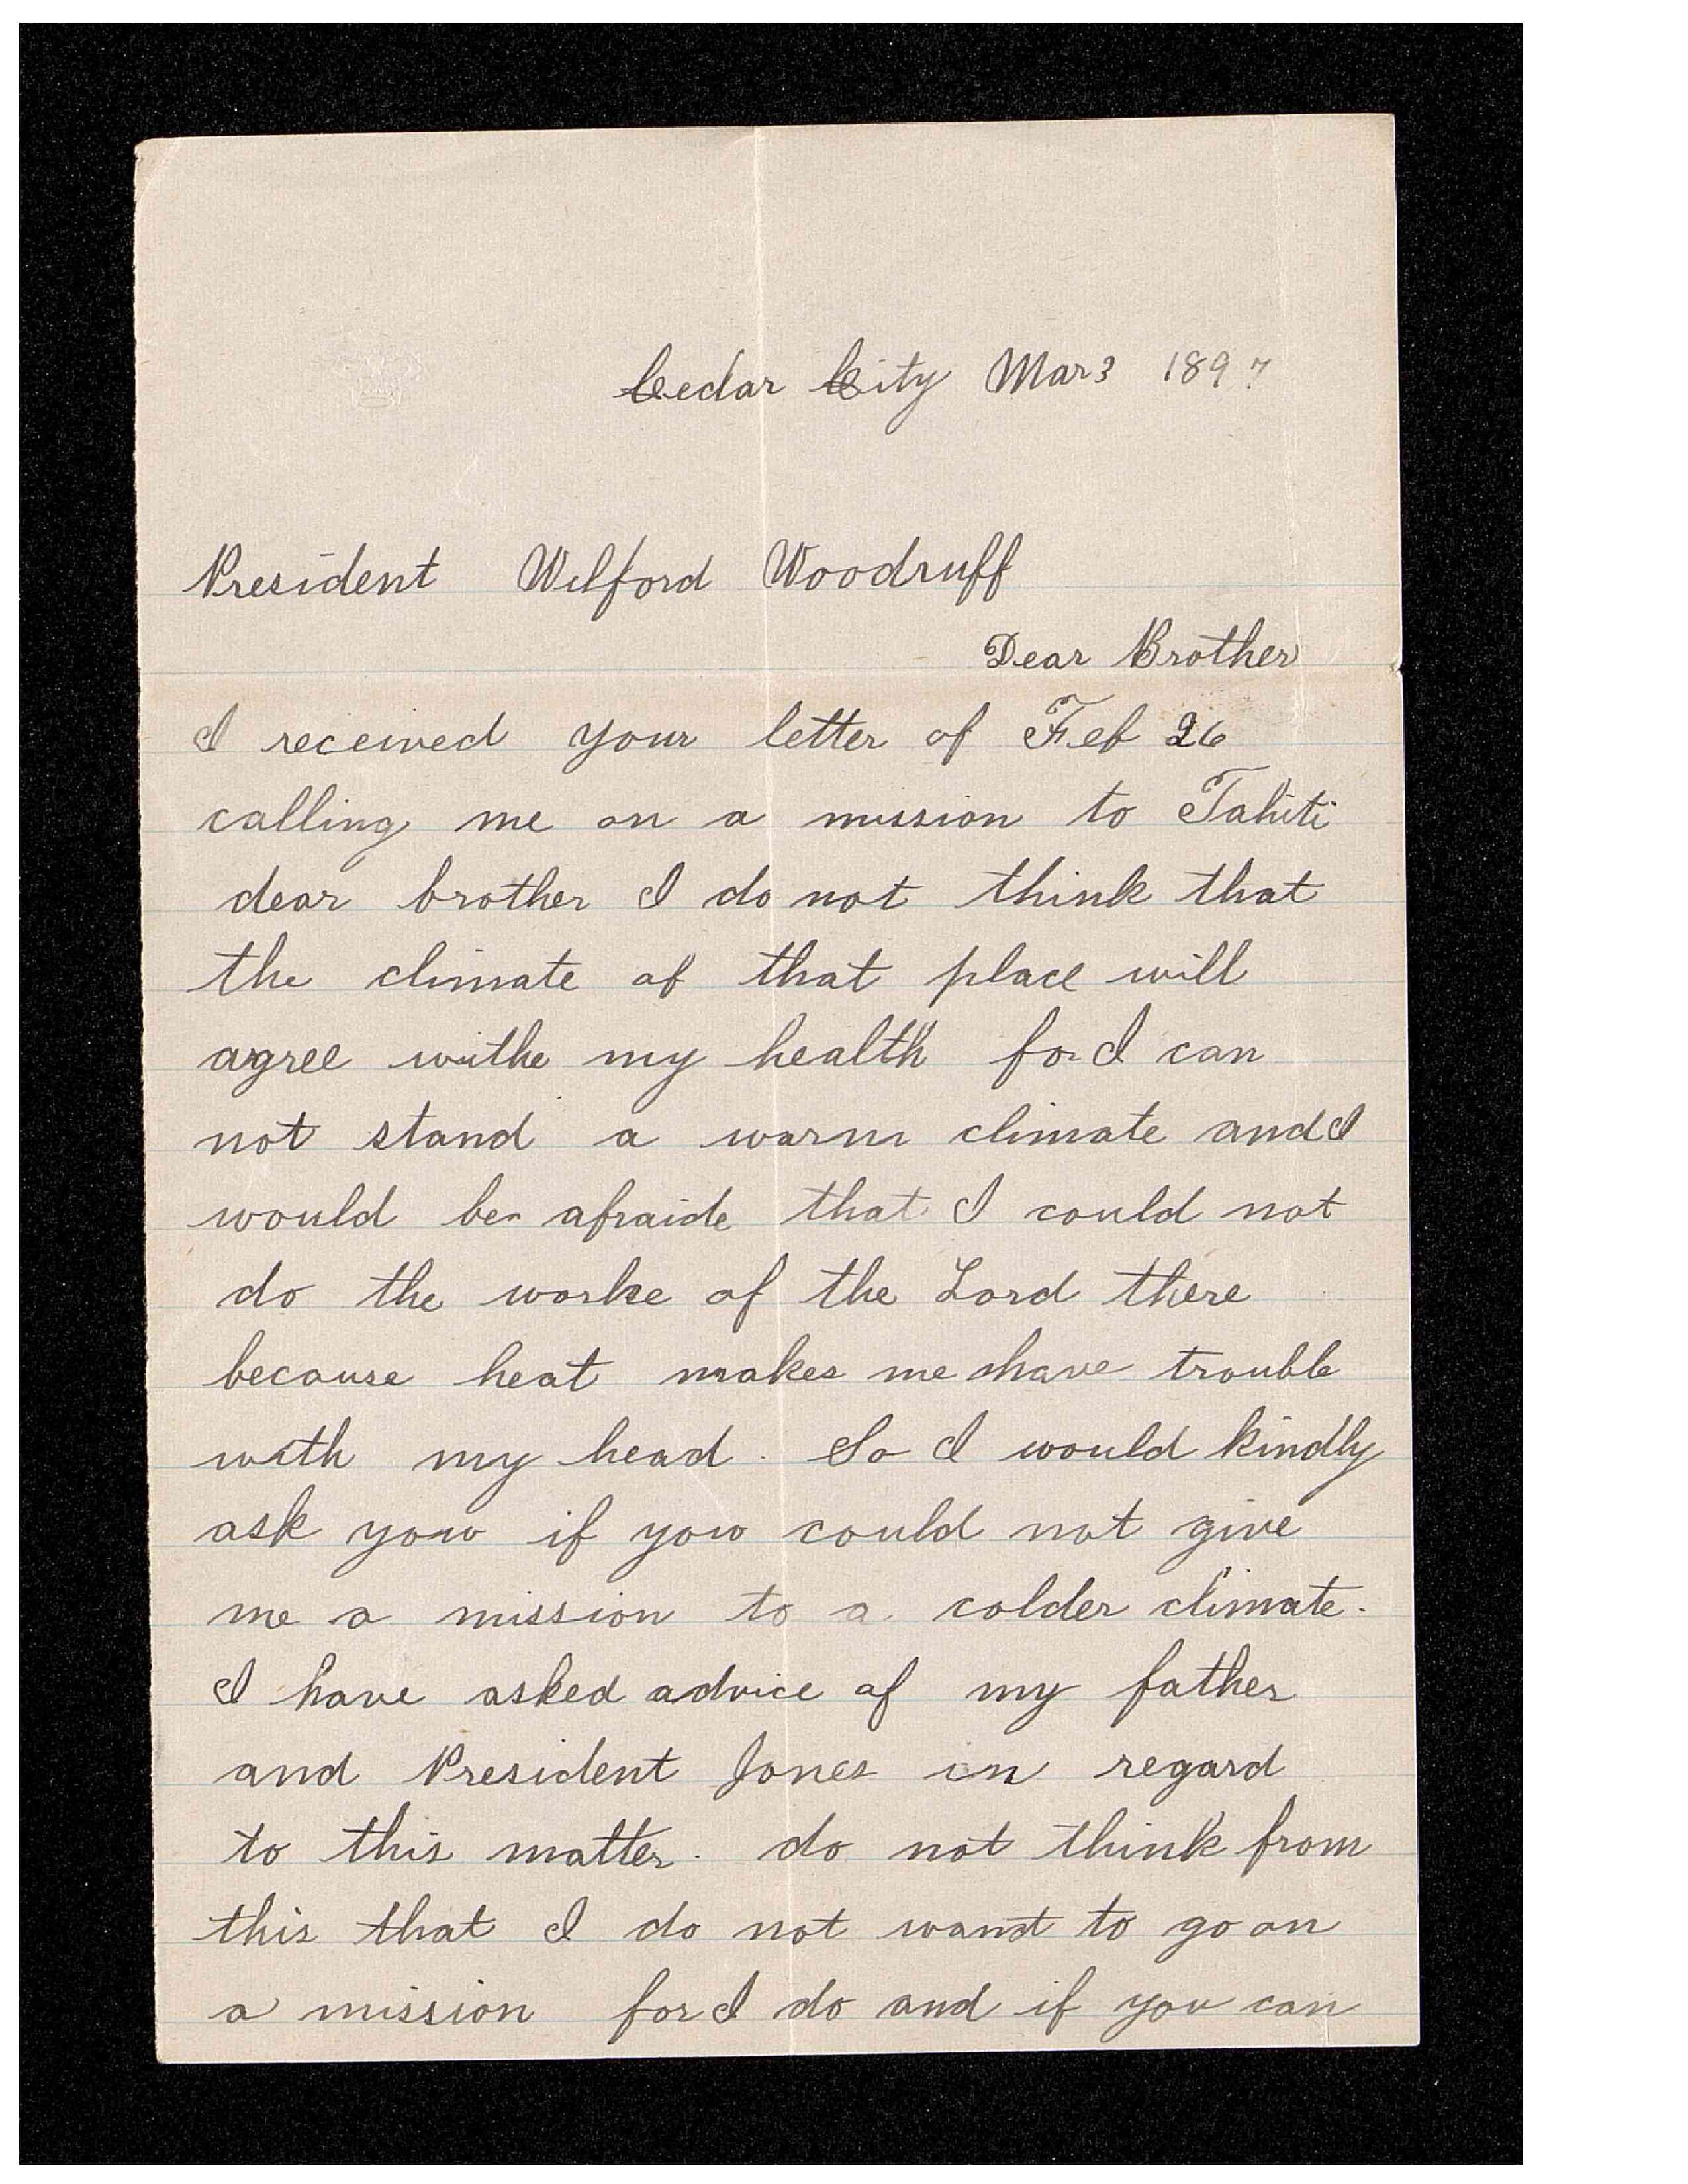 Cedar City Mar 3 1897
President Wilford Woodruff
Dear Brother
I received your letter of Feb 26
calling me on a mission to Tahiti
dear brother I do not think that
the climate of that place will
agree withe my health for I can
not stand a warm climate and I
would be afraide that I could not
do the worke of the Lord there
because heat makes me have trouble
with my head. So I would kindly
ask you if you could not give
me a mission to a colder climate.
I have asked advice of my father
and President Jones in regard
to this matter. do not think from
this that I do not want to go on
a mission for I do and if you can